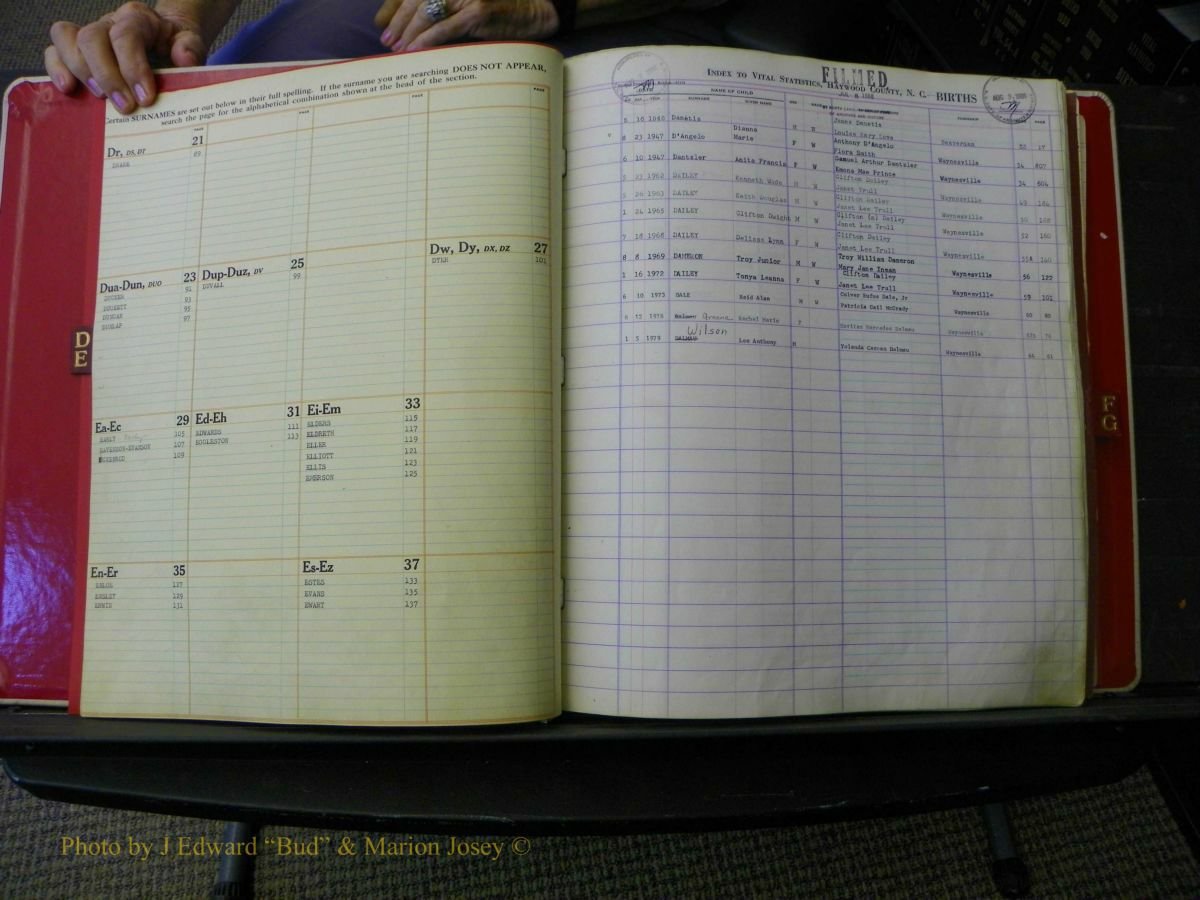 Certain SURNAMES are set out below in their full spelling. If the surname you are searching DOES NOT APPEAR,
search the page for the alphabetical combination shown at the head of the section.
PAGE PAGE PAGE PAGE
Dr, DS, DT 21
DRAKE 89
Dw, Dy, DX, DZ 27
DYER 101
Dua-Dun, DUO 23
DUCKER 91
DUCKETT 93
DUNCAN 95
DUNLAP 97
Dup-Duz, DV 25
DUVALL 99
Ea-Ec 29
EARLY 105
EAVENSON-EVANSON 107
109
Ed-Eh 31
EDWARDS 111
EGGLESTON 113
Ei-Em 33
ELDERS 115
ELDRETH 117
ELLER 119
ELLIOTT 121
ELLIS 123
EMERSON 125
En-Er 35
127
ENSLEY 129
ERWIN 131
Es-Ez 37
ESTES 133
EVANS 135
EWART 137
D
E
INDEX TO VITAL STATISTICS, HAYWOOD COUNTY, N. C. BIRTHS
FILMED
NAME OF CHILD
SURNAME GIVEN NAME
TOWNSHIP PAGE
Louise Mary Love
8 23 1947 D'Angelo Dianna Marie F W Anthony D'Angelo
Flora Smith
6 10 1947 Dantzler Anita Francis F W Samuel Arthur Dantzler Waynesville 34 807
Emona Mae Prince
5 23 1962 DAILEY Kenneth Wade M W Clifton Dailey Waynesville 34 604
Janet Trull
5 26 1963 DAILEY Keith Douglas M W Clifton Dailey Waynesville 49 184
Janet Lee Trull
1 24 1965 DAILEY Clifton Dwight M W Clifton (n) Dailey Waynesville
Janet Lee Trull
7 18 1968 DAILEY Delissa Lynn F W Clifton Dailey Waynesville 52 160
Janet Lee Trull
8 8 1969 DAMERON Troy Junior M W Troy William Dameron
Mary Jane Inman
1 16 1972 DAILEY Tonya Leanna F W Clifton Dailey Waynesville 56 122
Janet Lee Trull
6 10 1973 DALE Reid Alan M W Culver Rufus Dale, Jr Waynesville 59 101
Patricia Gail McCrady Waynesville 60 80
12 1978 Greene Rachel Marie F Maritza Mercedes Dalmau Waynesville
Wilson
1 5 1979 DALMAU Lee Anthony M Yolanda Carmen Dalmau Waynesville 61
F
G
Photo by J Edward “Bud” & Marion Josey ©